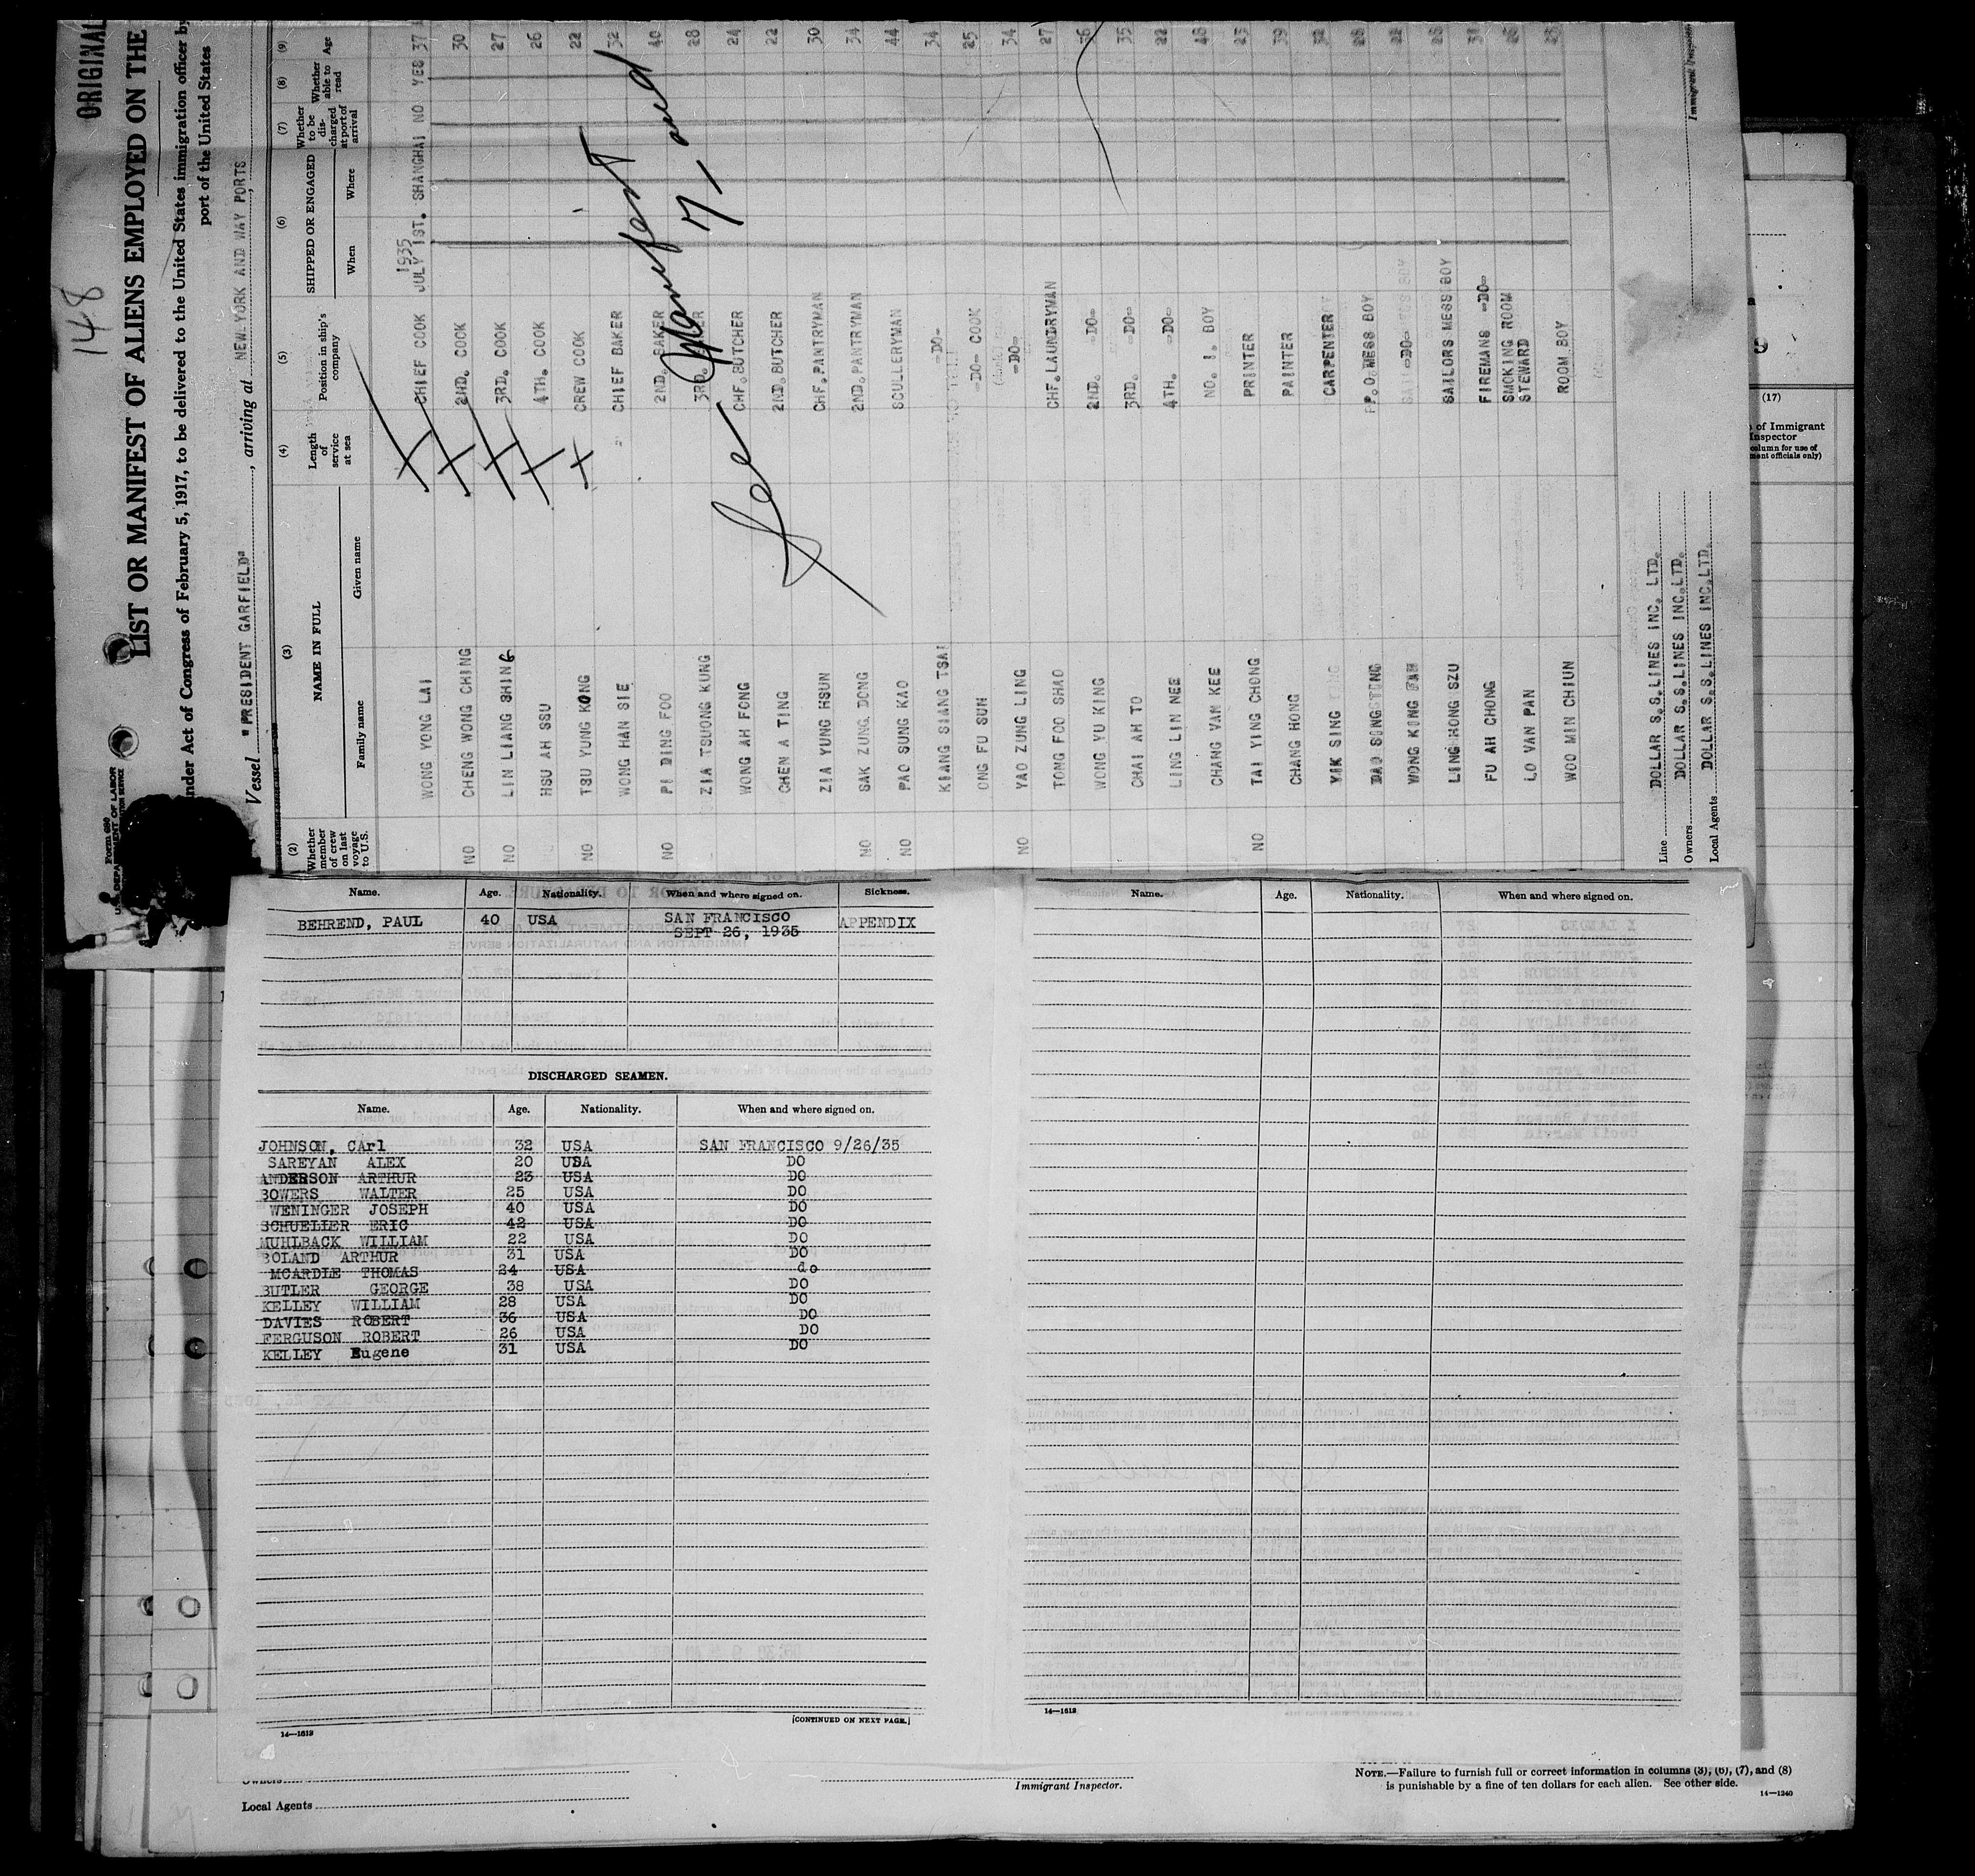 ORIGINAL
148
LIST OR MANIFEST OF ALIENS EMPLOYED ON THE
nder Act of Congress of February 5, 1917, to be delivered to the United States immigration officer by
port of the United States
Form 680
U.S. DEPARTMENT OF LABOR
Vessel "PRESIDENT GARFIELD", arriving at NEW YORK AND WAY PORTS,
(2) (3) (4) (5) (6) (7) (8) (9)
Whether member of crew on last voyage to U.S. NAME IN FULL Length of service at sea Position in ship's company SHIPPED OR ENGAGED Whether to be discharged at port of arrival Whether able to read Age
Family name Given name When Where
1935
WONG YONG LAI CHIEF COOK JULY 1ST. SHANGHAI NO YES 37
NO CHENG WONG CHING 2ND. COOK 30
NO LIN LIANG SHING 3RD. COOK 27
HSU AH SSU 4TH. COOK 26
NO TSU YUNG KONG CREW COOK 22
WONG HAN SIE CHIEF BAKER 32
NO PI DING FOO 2ND. BAKER 40
ZIA TSUNG KUNG 3RD. BAKER 28
WONG AH FONG CHF. BUTCHER 24
CHEN A TING 2ND. BUTCHER 22
ZIA YUNG HSUN CHF. PANTRYMAN 30
NO SAK ZUNG DONG 2ND. PANTRYMAN 34
NO PAO SUNG KAO SCULLERYMAN 44
KIANG SIANG TSAI -DO- 34
ONG FU SUN -DO- COOK 25
NO YAO ZUNG LING -DO- 34
TONG FOO SHAO CHF. LAUNDRYMAN 27
WONG YU KING 2ND. -DO- 36
CHAI AH TO 3RD. -DO- 35
LING LIN NEE 4TH. -DO- 22
CHANG VAN KEE NO. 1. BOY 48
NO TAI YING CHONG PRINTER 23
CHANG HONG PAINTER 39
YIK SING CARPENTER 32
P.O MESS BOY 28
WONG KUNG -DO- 22
LING HONG SZU SAILORS MESS BOY 28
FU AH CHONG FIREMANS -DO- 31
LO VAN PAN SMOKING ROOM STEWARD 26
WOO MIN CHIUN ROOM BOY
See Manifest 7- and
Line DOLLAR S.S. LINES INC. LTD.
Owners DOLLAR S.S. LINES INC. LTD.
Local Agents DOLLAR S.S. LINES INC. LTD.
Immigrant Inspector
(17)
of Immigrant
Inspector
column for use of
ment officials only)
Name. Age. Nationality. When and where signed on. Sickness.
BEHREND, PAUL 40 USA SAN FRANCISCO SEPT 26, 1935 APPENDIX
DISCHARGED SEAMEN.
Name. Age. Nationality. When and where signed on.
JOHNSON, CArl 32 USA SAN FRANCISCO 9/26/35
SAREYAN ALEX 20 USA DO
ANDERSON ARTHUR 23 USA DO
BOWERS WALTER 25 USA DO
WENINGER JOSEPH 40 USA DO
SCHUELLER ERIC 42 USA DO
MUHLBACK WILLIAM 22 USA DO
BOLAND ARTHUR 31 USA DO
MCARDLE THOMAS 24 USA do
BUTLER GEORGE 38 USA DO
KELLEY WILLIAM 28 USA DO
DAVIES ROBERT 36 USA DO
FERGUSON ROBERT 26 USA DO
KELLEY Eugene 31 USA DO
14—1613
[CONTINUED ON NEXT PAGE.]
Name. Age. Nationality. When and where signed on.
14—1613
Owners
Local Agents
Immigrant Inspector.
NOTE.—Failure to furnish full or correct information in columns (3), (6), (7), and (8)
is punishable by a fine of ten dollars for each alien. See other side.
14—1240